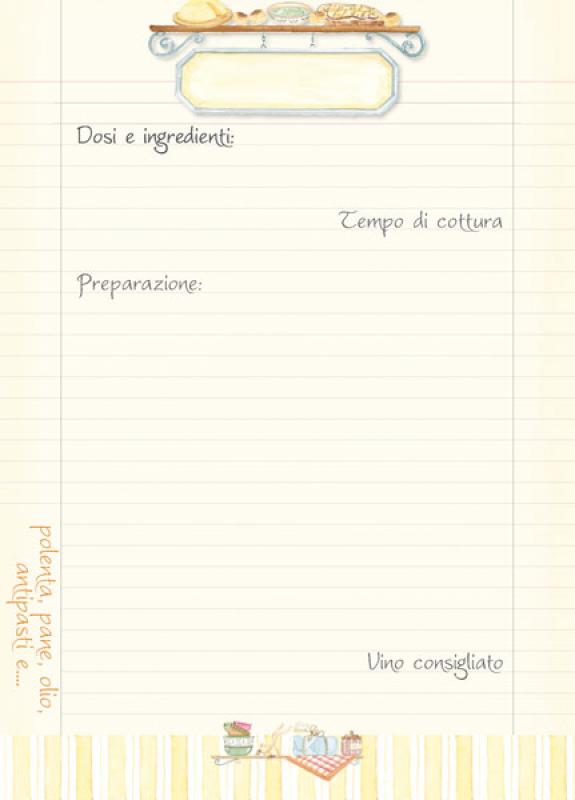 Dosi e ingredienti:
Tempo di cottura
Preparazione:
polenta, pane, olio,
antipasti e....
Vino consigliato